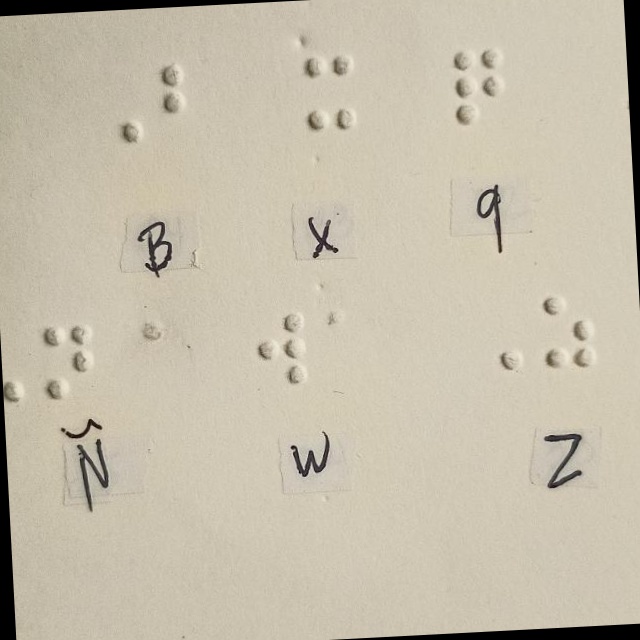 ⠠⠃ ⠭ ⠟
B X q
⠠⠝ ⠺ ⠠⠵
Ñ W Z